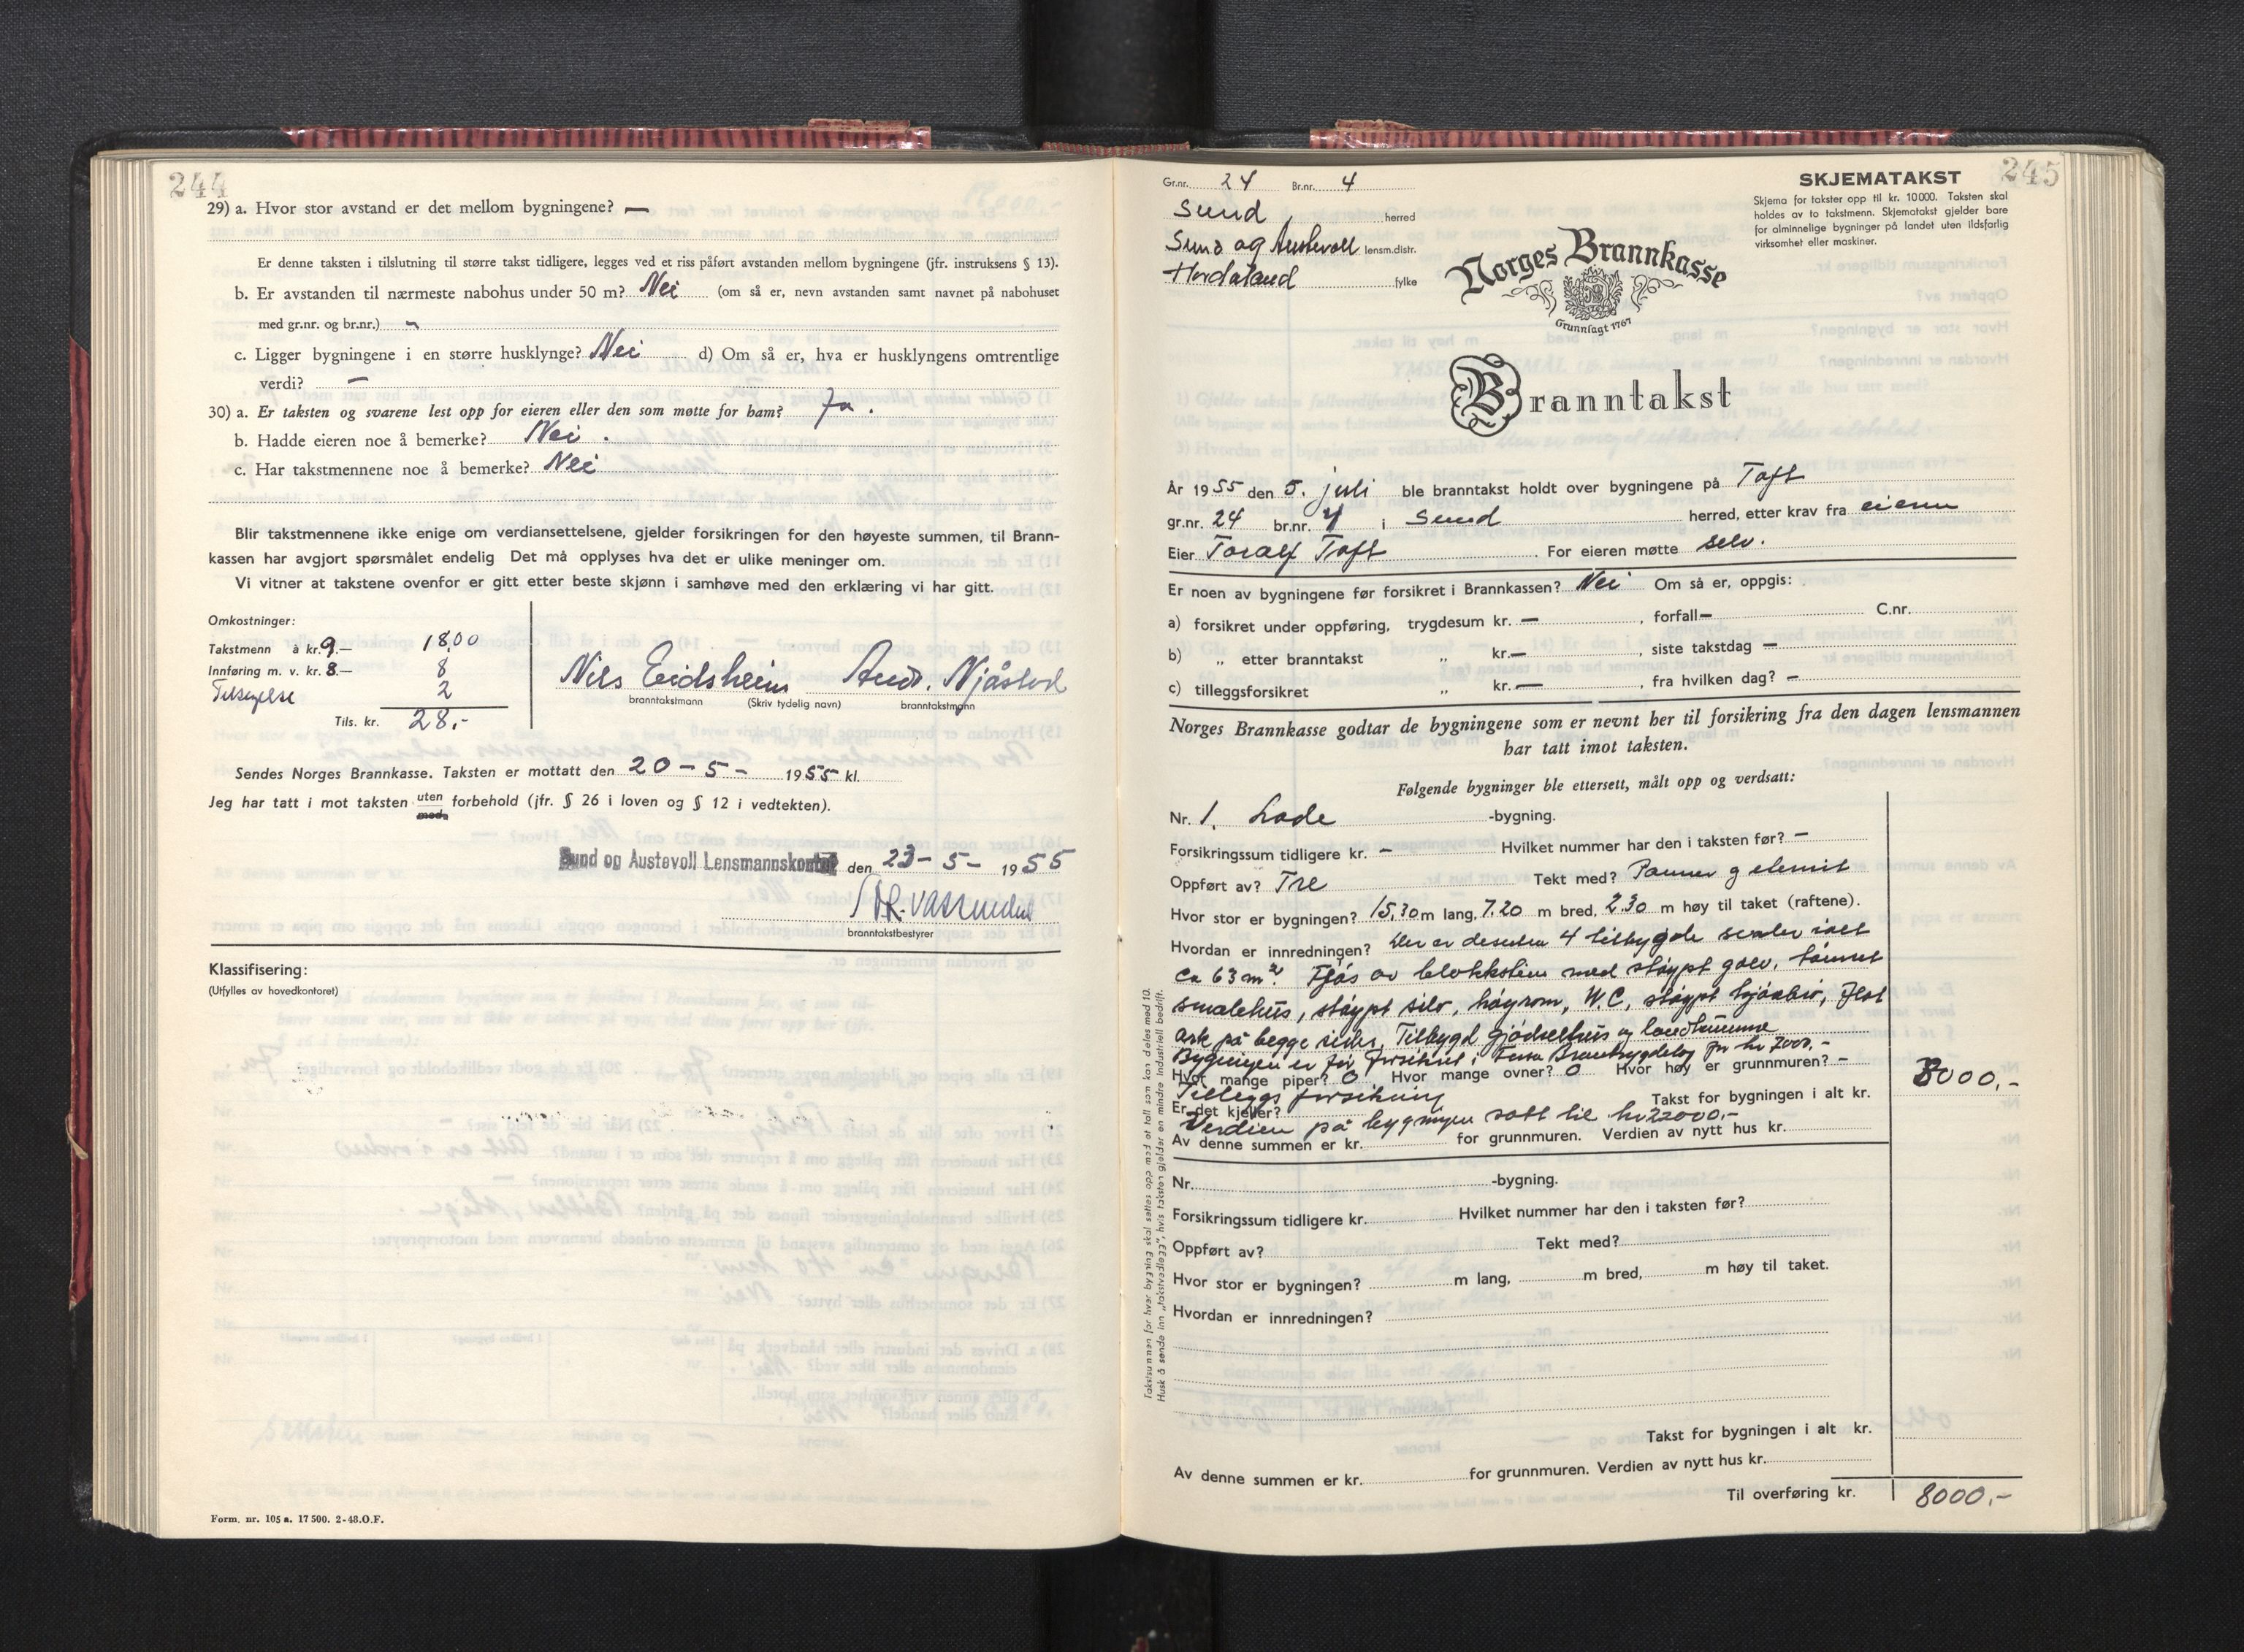 244
29) a. Hvor stor avstand er det mellom bygningene? —
Er denne taksten i tilslutning til større takst tidligere, legges ved et riss påført avstanden mellom bygningene (jfr. instruksens § 13).
b. Er avstanden til nærmeste nabohus under 50 m? Nei (om så er, nevn avstanden samt navnet på nabohuset
med gr.nr. og br.nr.) -
c. Ligger bygningene i en større husklynge? Nei d) Om så er, hva er husklyngens omtrentlige
verdi? —
30) a. Er taksten og svarene lest opp for eieren eller den som møtte for ham? Ja.
b. Hadde eieren noe å bemerke? Nei.
c. Har takstmennene noe å bemerke? Nei
Blir takstmennene ikke enige om verdiansettelsene, gjelder forsikringen for den høyeste summen, til Brann-
kassen har avgjort spørsmålet endelig Det må opplyses hva det er ulike meninger om.
Vi vitner at takstene ovenfor er gitt etter beste skjønn i samhøve med den erklæring vi har gitt.
Omkostninger:
Takstmenn à kr. 9.— 18.00
Innføring m. v. kr. 8.— 8
2
Tils. kr. 28.-
Nils Eidsheim And. Njåstad
branntakstmann (Skriv tydelig navn) branntakstmann
Sendes Norges Brannkasse. Taksten er mottatt den 20-5- 1955 kl.
Jeg har tatt i mot taksten uten forbehold (jfr. § 26 i loven og § 12 i vedtekten).
med
Sund og Austevoll Lensmannskontor den 23-5- 1955
branntakstbestyrer
Klassifisering:
(Utfylles av hovedkontoret)
Form. nr. 105 a. 17 500. 2-48.O.F.
245
Gr.nr. 24 Br.nr. 4
Sund, herred
Sund og Austevoll lensm.distr.
Hordaland fylke
SKJEMATAKST
Skjema for takster opp til kr. 10000. Taksten skal
holdes av to takstmenn. Skjematakst gjelder bare
for alminnelige bygninger på landet uten ildsfarlig
virksomhet eller maskiner.
Norges Brannkasse
Grunnlagt 1767
Branntakst
År 1955 den 5. juli ble branntakst holdt over bygningene på Toft
gr.nr. 24 br.nr. 4 i Sund herred, etter krav fra eieren
Eier Toralf Toft For eieren møtte selv.
Er noen av bygningene før forsikret i Brannkassen? Nei Om så er, oppgis:
a) forsikret under oppføring, trygdesum kr. — , forfall — C.nr.
b) „ etter branntakst „ kr. — , siste takstdag —
c) tilleggsforsikret „ kr. — , fra hvilken dag? —
Norges Brannkasse godtar de bygningene som er nevnt her til forsikring fra den dagen lensmannen
har tatt imot taksten.
Følgende bygninger ble ettersett, målt opp og verdsatt:
Nr. 1. Løde -bygning.
Forsikringssum tidligere kr. - Hvilket nummer har den i taksten før? —
Oppført av? Tre Tekt med? Panner g eternit
Hvor stor er bygningen? 15,30 m lang, 7.20 m bred, 2.30 m høy til taket (raftene).
Hvordan er innredningen? Der er desuten 4 tilbygde skaler i alt
ca 63 m². Fjøs av blokkstein med støypt golv, tømret
smalehus, støypt silo, høyrom, W.C, støypt kjørebro, Flat
ark på begge sider, Tilbygd gjødselhus og landkumme
Bygningen er før forsikret i Branntrygdelag for kr 7000.-
Hvor mange piper? 0 Hvor mange ovner? 0 Hvor høy er grunnmuren? —
Tilleggs forsikring
Er det kjeller? Takst for bygningen i alt kr. 8000,-
Verdien på bygningen satt til kr 22000.-
Av denne summen er kr. for grunnmuren. Verdien av nytt hus kr.
Nr. -bygning.
Forsikringssum tidligere kr. Hvilket nummer har den i taksten før?
Oppført av? Tekt med?
Hvor stor er bygningen? m lang, m bred, m høy til taket.
Hvordan er innredningen?
Takst for bygningen i alt kr.
Av denne summen er kr. for grunnmuren. Verdien av nytt hus kr.
Til overføring kr. 8000.-
Takstsummen for hver bygning skal settes opp med et tall som kan deles med 10.
Husk å sende inn „takstvedlegg", hvis taksten gjelder en mindre industriell bedrift.